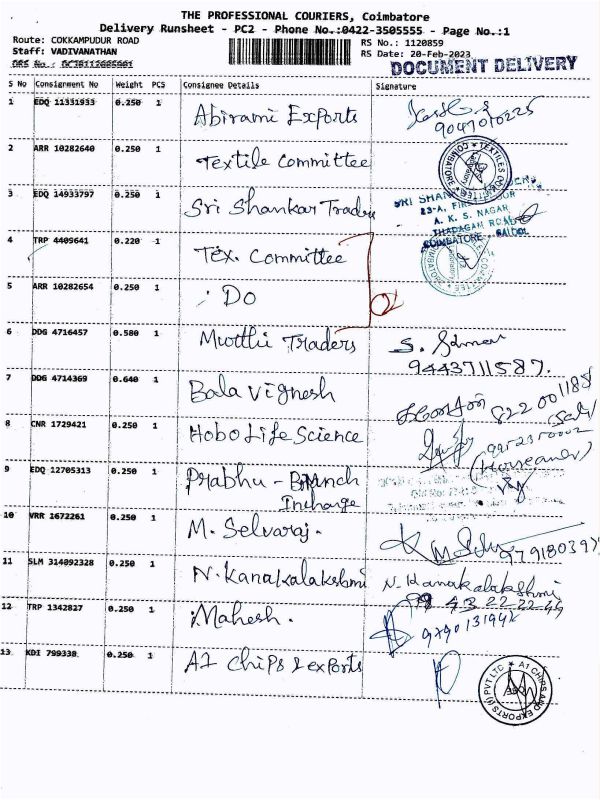 THE PROFESSIONAL COURIERS, Coimbatore
Delivery Runsheet - PC2 - Phone No.:0422-3505555 - Page No.:1
Route: COKKAMPUDUR ROAD
RS No.: 1120859
Staff: VADIVANATHAN
RS Date: 20-Feb-2023
DOCUMENT DELIVERY
S No Consignment No Weight PCS Consignee Details Signature
1 EDQ 11331933 0.250 1 Abirami Exports
9047070225
2 ARR 10282640 0.250 1 Textile Committee
3 EDQ 14933797 0.250 1 Sri Shankar Traders
A. K. S. NAGAR
THADAGAM ROAD
COIMBATORE
4 TRP 4409641 0.220 1 Tex. Committee
5 ARR 10282654 0.250 1 Do
6 DDG 4716457 0.580 1 Murthi Traders
9443711587.
7 DDG 4714369 0.640 1 Bala Vignesh
8 CNR 1729421 0.250 1 Hobo Life Science
9 EDQ 12705313 0.250 1 Prabhu - Branch
Incharge
10 VRR 1672261 0.250 1 M. Selvaraj.
11 SLM 314092328 0.250 1 N. Kanakalakshmi N. Kanakalakshmi
12 TRP 1342827 0.250 1 Mahesh.
13 KDI 799338 0.250 1 A1 Chips & exports
A1 CHIPS AND EXPORTS (I) PVT LTC